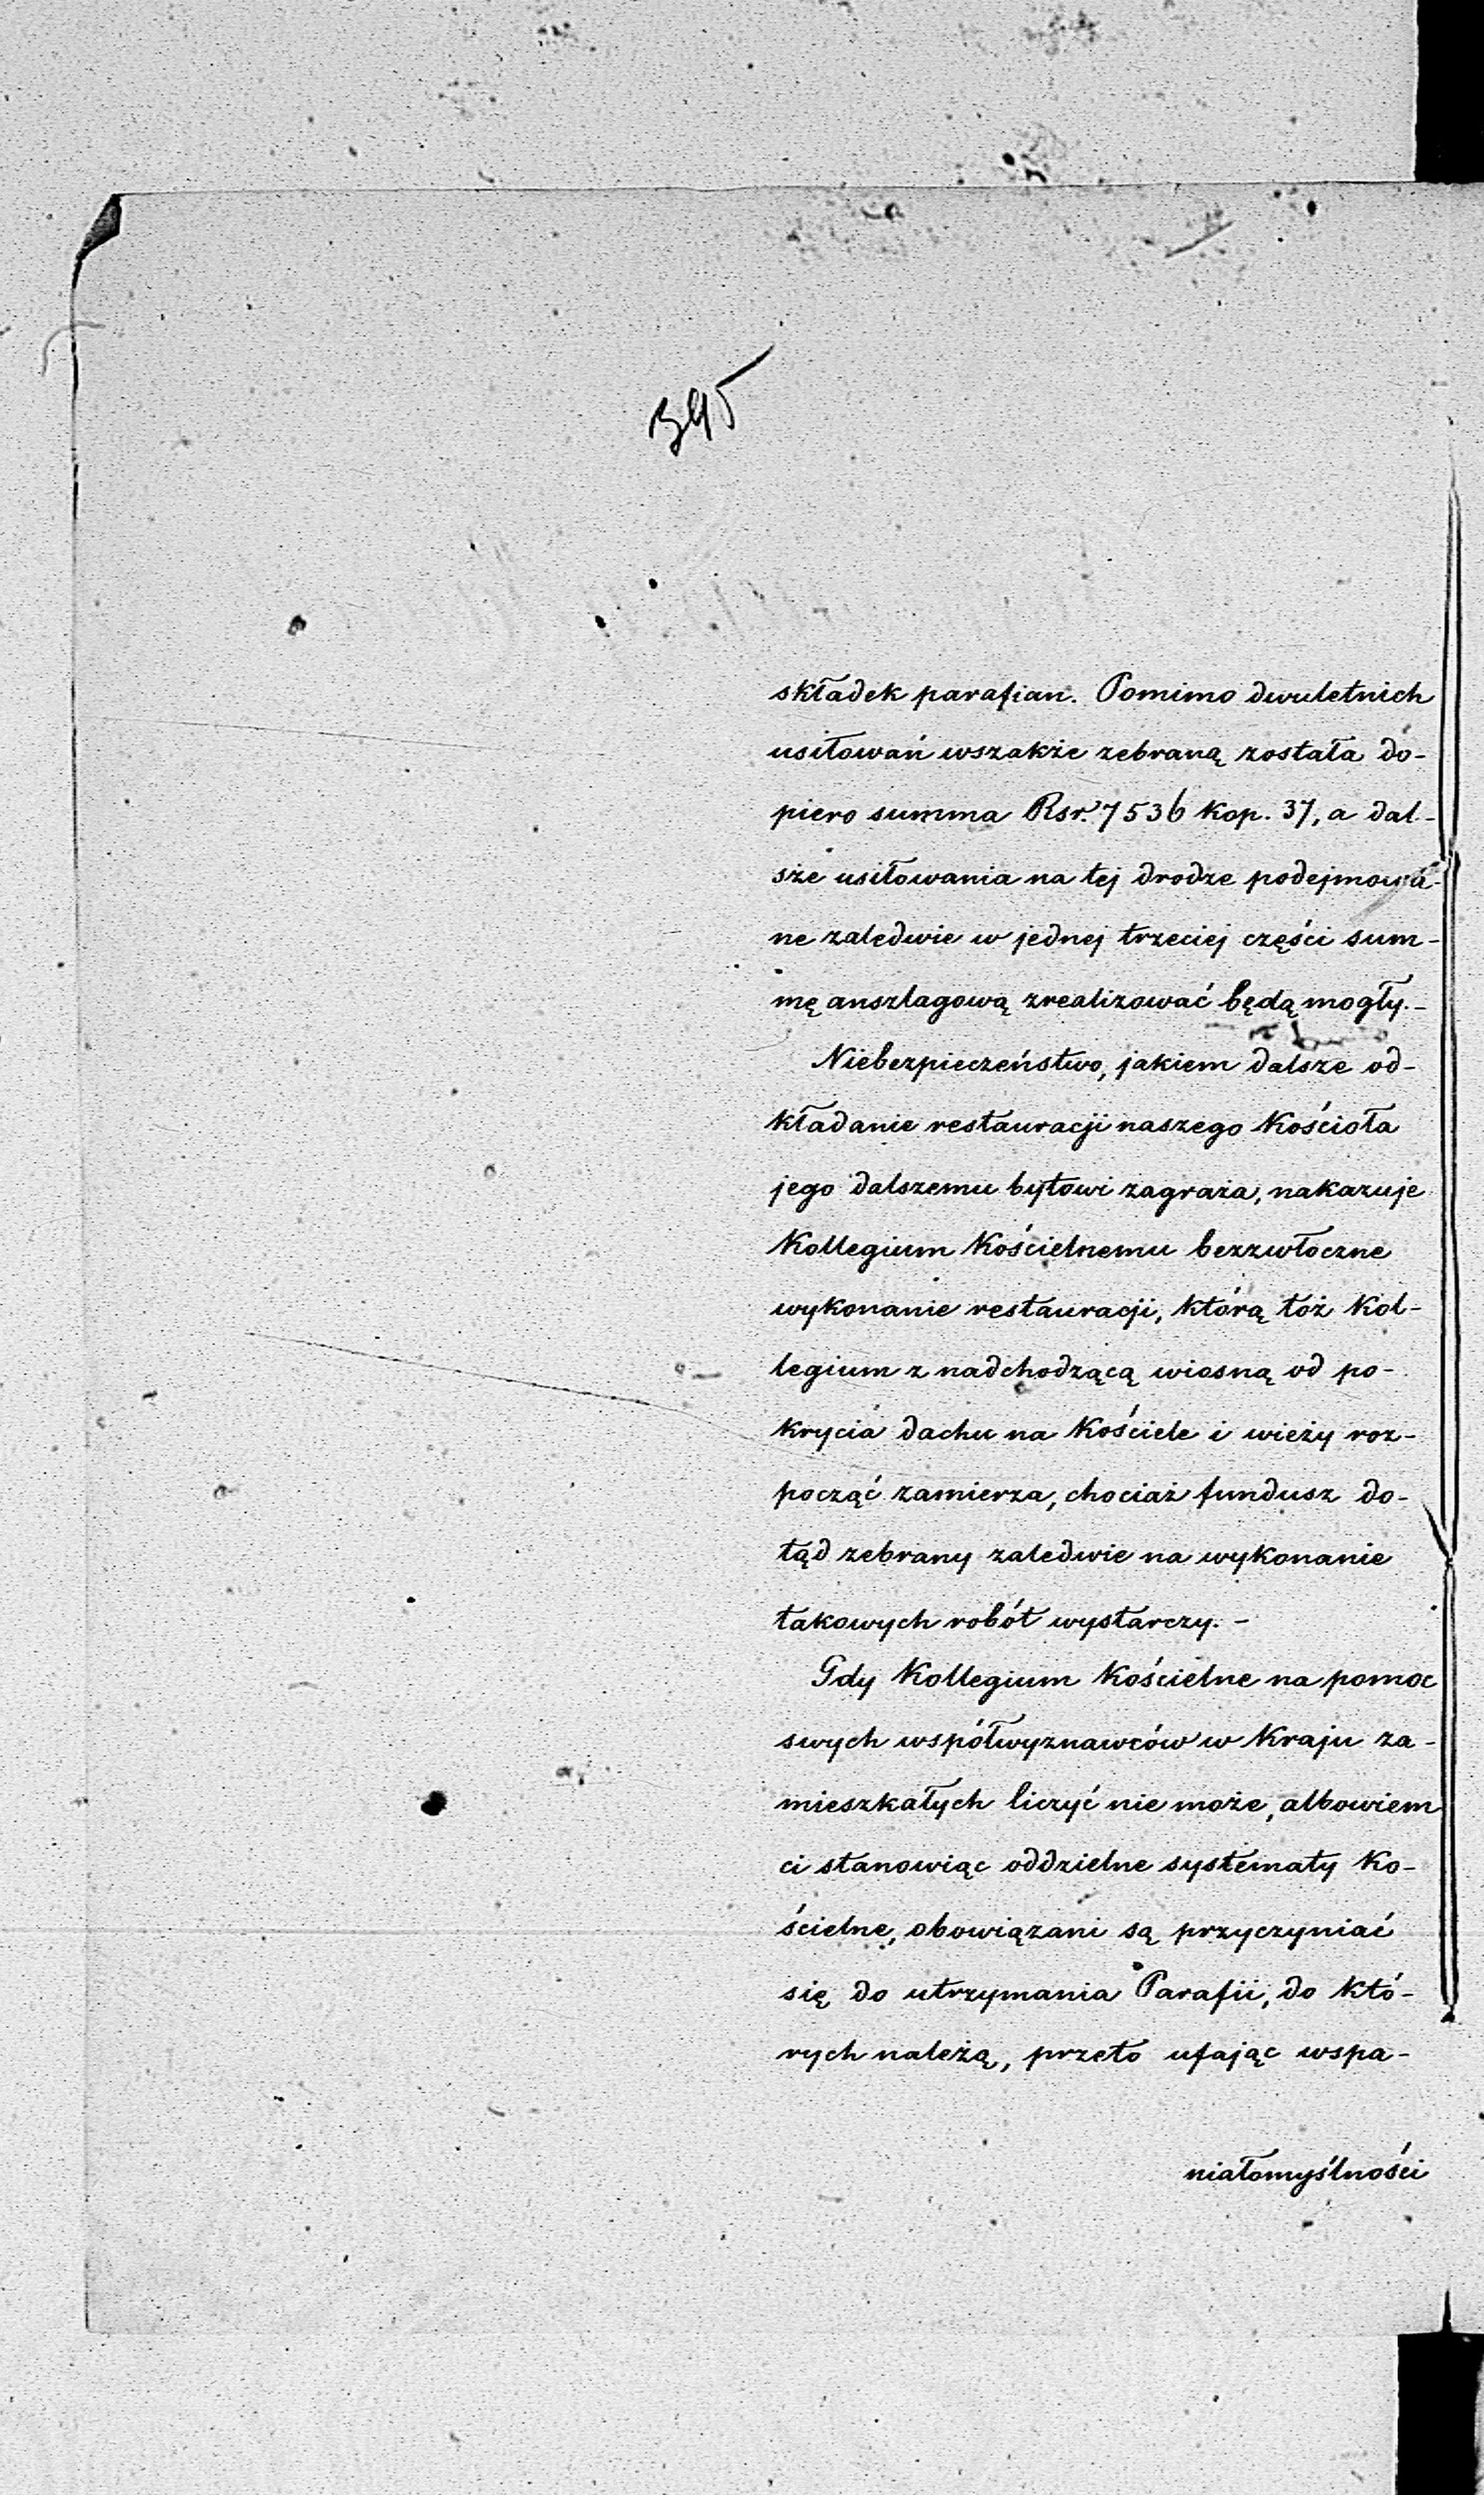 395
składek parafian. Pomimo dwuletnich
usiłowań wszakże zebraną została do-
piero summa Rsr. 7536 kop. 37, a dal-
sże usiłowania na tej drodze podejmowa-
ne zaledwie w jednej trzeciej części sum-
mę anszlagową zrealizować będą mogły.-
Niebezpieczeństwo, jakiem dalsze od-
kładanie restauracji naszego Kościoła
jego dalszemu bytowi zagraża, nakazuje
Kollegium Kościelnemu bezzwłoczne
wykonanie restauracji, którą toż Kol-
legium z nadchodzącą wiosną od po-
krycia dachu na Kościele i wieży roz-
począć zamierza, chociaż fundusz do-
tąd zebrany zaledwie na wykonanie
takowych robót wystarczy. -
Gdy Kollegium Kościelne na pomoc
swych współwyznawców w Kraju za-
mieszkałych liczyć nie może, albowiem
ci stanowiąc oddzielne systematy Ko-
ścielne, obowiązani są przyczyniać
się do utrzymania Parafii, do któ-
rych należą, przeto ufając wspa-
niałomyślności